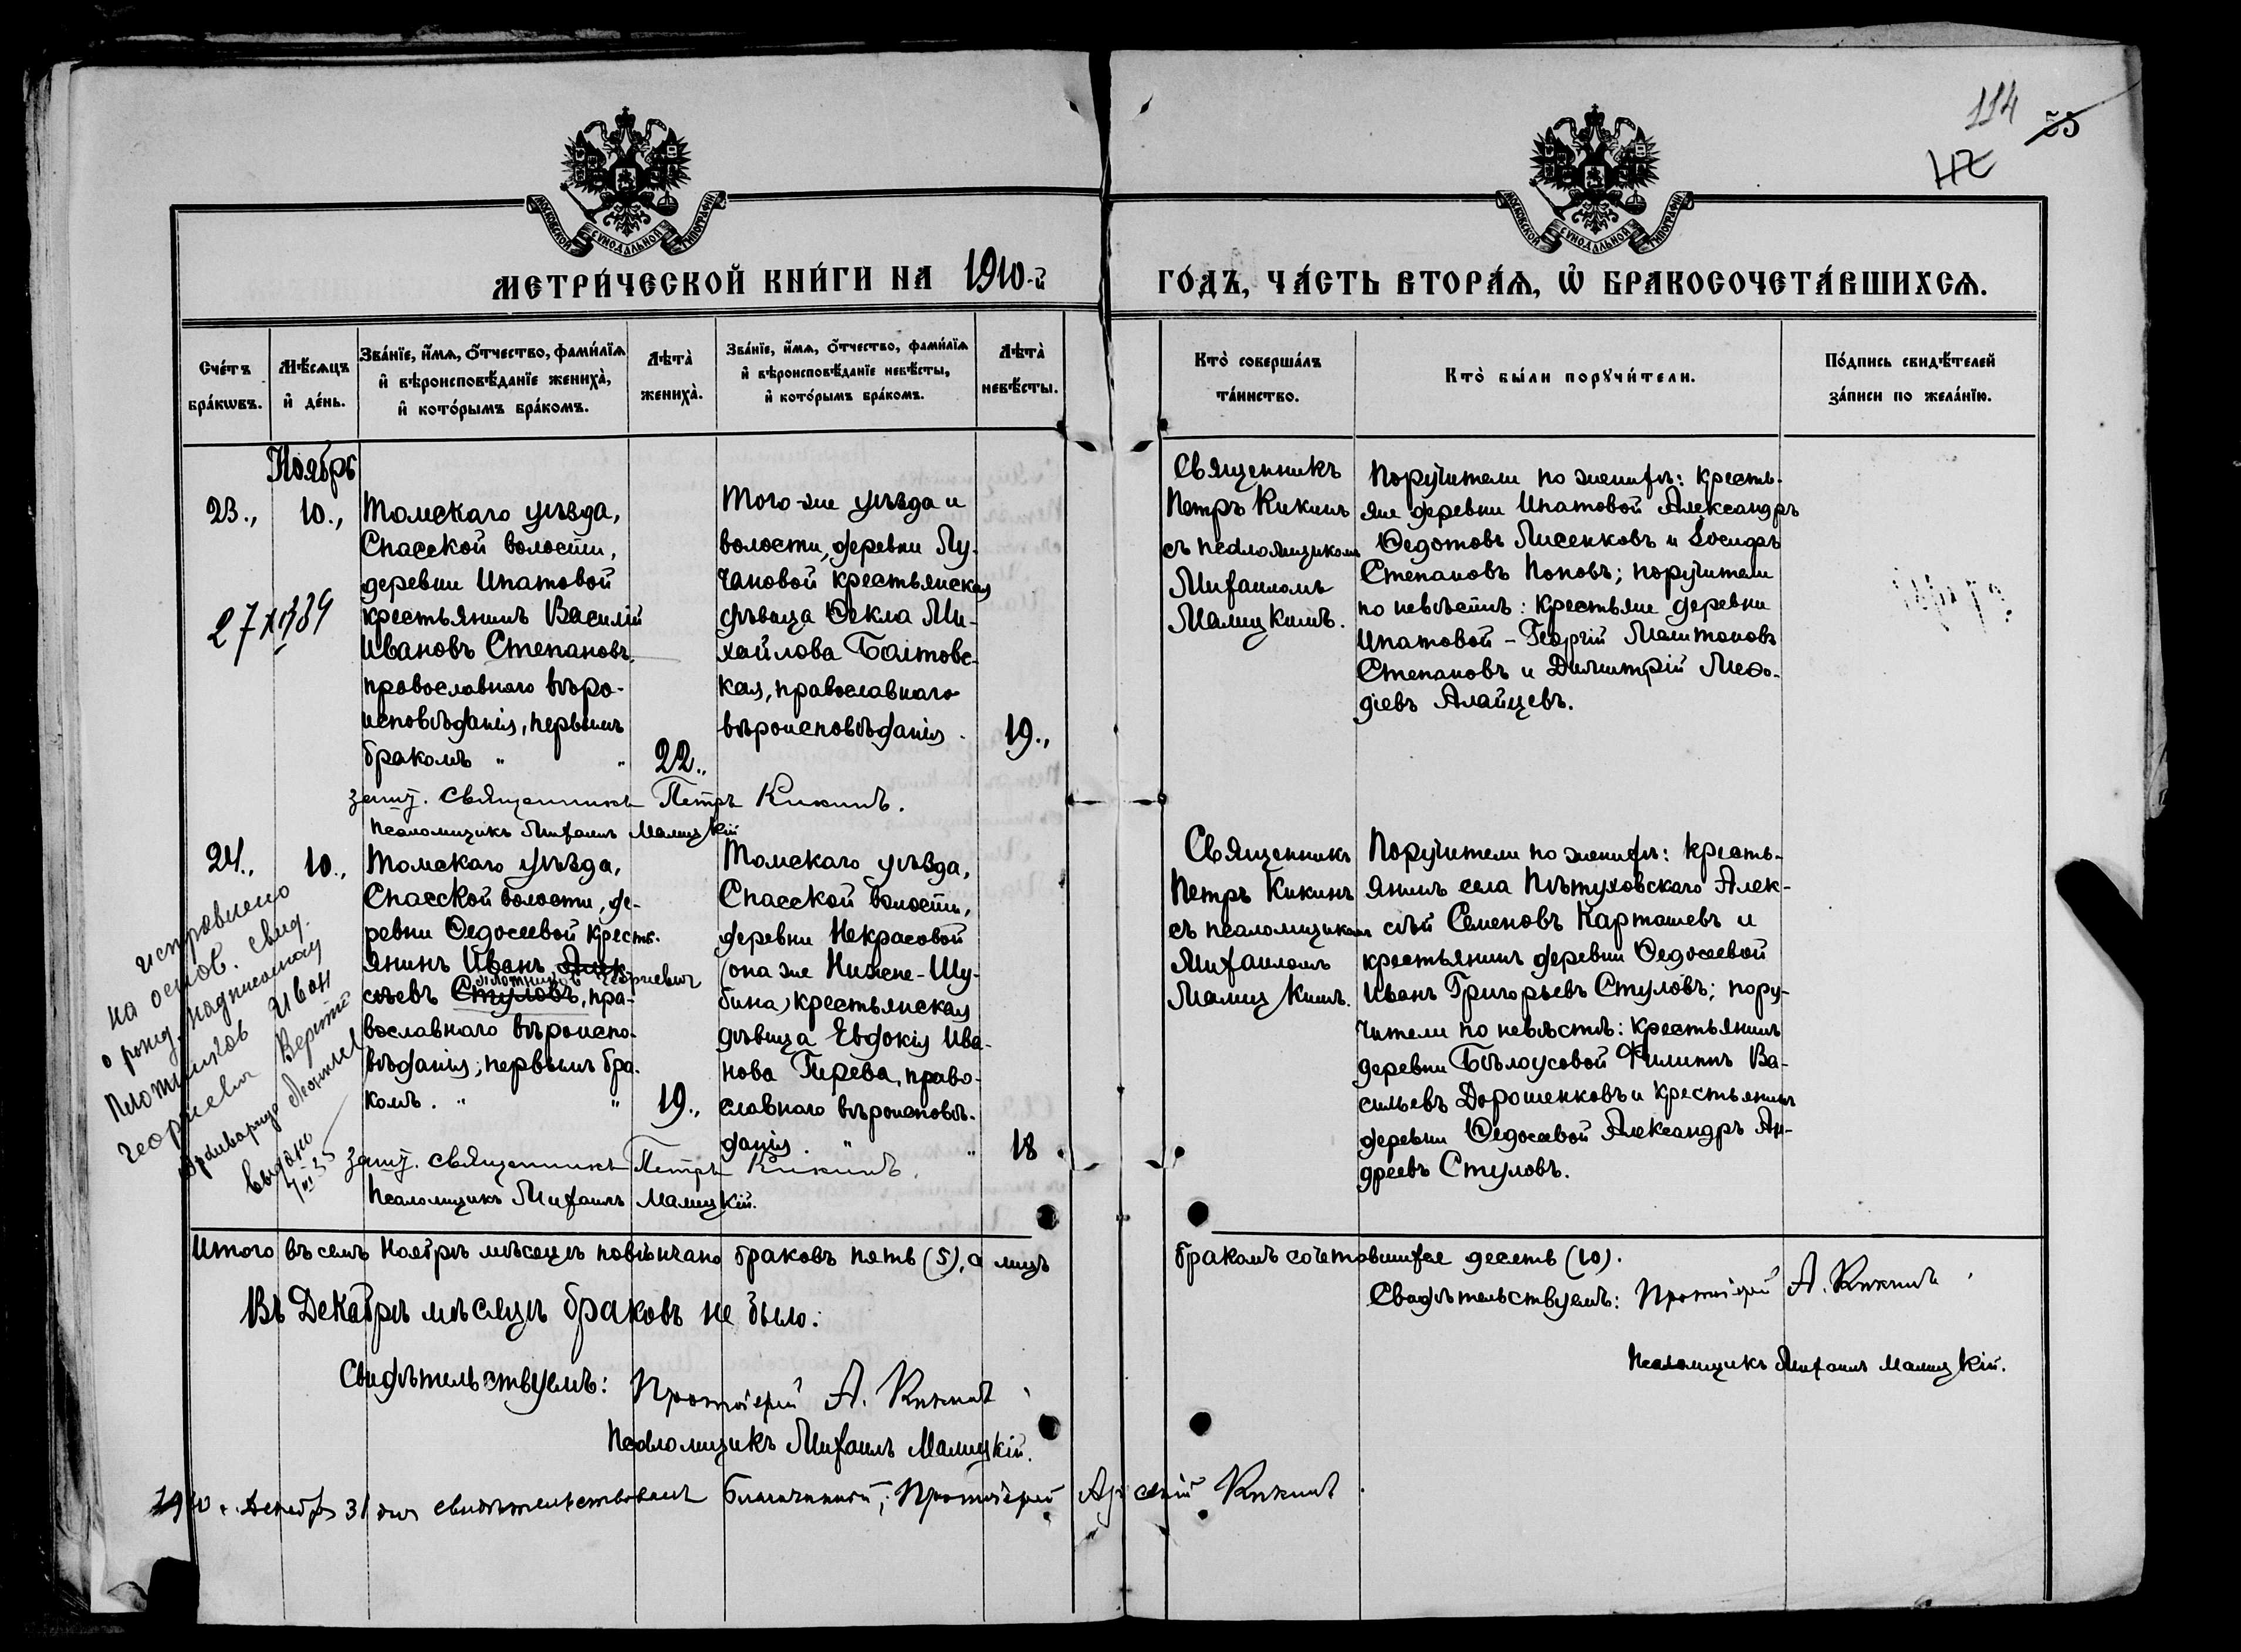 114
55
42
МОСКОВСКОЙ СѴНОДАЛЬНОЙ ТИПОГРАФІИ
МОСКОВСКОЙ СѴНОДАЛЬНОЙ ТИПОГРАФІИ
МЕТРИ́ЧЕСКОЙ КНИ́ГИ НА 1910-й
ГО́ДЪ, ЧА́СТЬ ВТОРА́Ѧ, Ѡ҆ БРАКОСОЧЕТА́ВШИХСѦ.
Сче́тъ
бра́кѡвъ.
Мѣ́сѧцъ
и҆ де́нь.
Зва́нїе, и҆́мѧ, ѻ҆́тчество, фами́лїѧ
и҆ вѣроисповѣ́данїе жениха̀,
и҆ кото́рымъ бра́комъ.
Лѣта̀
жениха̀.
Зва́нїе, и҆́мѧ, ѻ҆́тчество, фами́лїѧ
и҆ вѣроисповѣ́данїе невѣ́сты,
и҆ кото́рымъ бра́комъ.
Лѣта̀
невѣ́сты.
Кто̀ соверша́лъ
та́инство.
Кто̀ бы́ли порꙋчи́тели.
По́дпись свидѣ́телей
за́писи по жела́нїю.
Ноябрь
23., 10.,
Томскаго уѣзда,
Спасской волости,
деревни Ипатовой
крестьянинъ Василій
Ивановъ Степановъ,
православнаго вѣро-
исповѣданія, первымъ
бракомъ " "
22.,
Того-же уѣзда и
волости, деревни Лу-
чановой крестьянская
дѣвица Ѳекла Ми-
хайлова Балтовс-
кая, православнаго
вѣроисповѣданія.
19.,
Священникъ
Петръ Кикинъ
съ псаломщикомъ
Михаиломъ
Малицкимъ.
Поручители по женихѣ: кресть-
яне деревни Ипатовой Александръ
Ѳедотовъ Лисенковъ и Іосифъ
Степановъ Поповъ; поручители
по невѣстѣ: крестьяне деревни
Ипатовой - Георгій Малитоновъ
Степановъ и Димитрій Меѳо-
діевъ Алайцевъ.
Священникъ Петръ Кикинъ.
Псаломщикъ Михаилъ Малицкій
24., 10.,
Томскаго уѣзда,
Спасской волости, де-
ревни Ѳедосеевой крестъ-
янинъ Иванъ Алек-
Плотников Георгиевич
сѣевъ Стуловъ, пра-
вославнаго вѣроиспо-
вѣданія; первымъ бра-
комъ. " "
19.,
Томскаго уѣзда,
Спасской волости,
деревни Некрасовой
(она же Нижне-Шу-
бина) крестьянская
дѣвица Евдокія Ива-
нова Гирева, право-
славнаго вѣроисповѣ-
данія. " "
18
Священникъ
Петръ Кикинъ
съ псаломщикомъ
Михаиломъ
Малицкимъ.
Поручители по женихѣ: кресть-
янинъ села Пѣтуховскаго Алек-
сѣй Семеновъ Карташевъ и
крестьянинъ деревни Ѳедосеевой
Иванъ Григорьевъ Стуловъ; пору-
чители по невѣстѣ: крестьянинъ
деревни Бѣлоусовой Филиппъ Ва-
сильевъ Дорошенковъ и крестьянинъ
деревни Ѳедосеевой Александръ Ан-
дреевъ Стуловъ.
исправлено
на основ. свид.
о рожд. надписанному
Плотников Иван
Георгиевич Верить
выдано
Священникъ Петръ Кикинъ.
Псаломщикъ Михаилъ Малицкій.
Итого въ семъ Ноябрѣ мѣсяцѣ повѣнчано браковъ пять (5), а лицъ
бракомъ сочетавшихся десять (10).
Свидѣтельствуемъ: Протоіерей А. Кикинъ
Псаломщикъ Михаилъ Малицкій.
Въ Декабрѣ мѣсяцѣ браковъ не было:
Свидѣтельствуемъ: Протоіерей А. Кикинъ
Псаломщикъ Михаилъ Малицкій.
1910 г. Декабря 31 дня свидѣтельствовалъ Благочинный, Протоіерей Арсеній Кикинъ